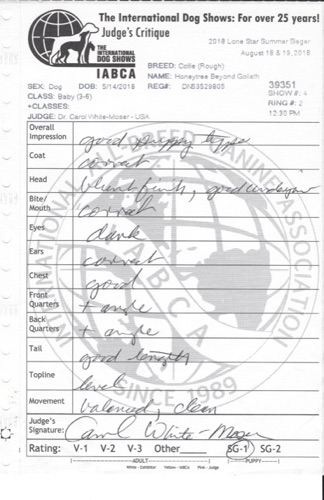 The International Dog Shows: For over 25 years!
Judge's Critique
THE
INTERNATIONAL
DOG SHOWS
IABCA
2018 Lone Star Summer Sieger
August 18 & 19, 2018
BREED: Collie (Rough)
NAME: Honeytree Beyond Goliath
SEX: Dog DOB: 5/14/2018 REG#: DN53529805
39351
CLASS: Baby (3-6)
SHOW #: 4
+CLASSES:
RING #: 2
JUDGE: Dr. Carol White-Moser - USA
12:30 PM
Overall Impression good puppy type
Coat correct
Head blunt finish, good underjaw
Bite/Mouth correct
Eyes dark
Ears correct
Chest good
Front Quarters + angle
Back Quarters + angle
Tail good length
Topline level
Movement balanced, clean
Judge's Signature: Carol White-Moser
Rating: V-1 V-2 V-3 Other SG-1 SG-2
ADULT PUPPY
White - Exhibitor Yellow - IABCA Pink - Judge
INTERNATIONAL ALL BREED CANINE ASSOCIATION
IABCA
SINCE 1989